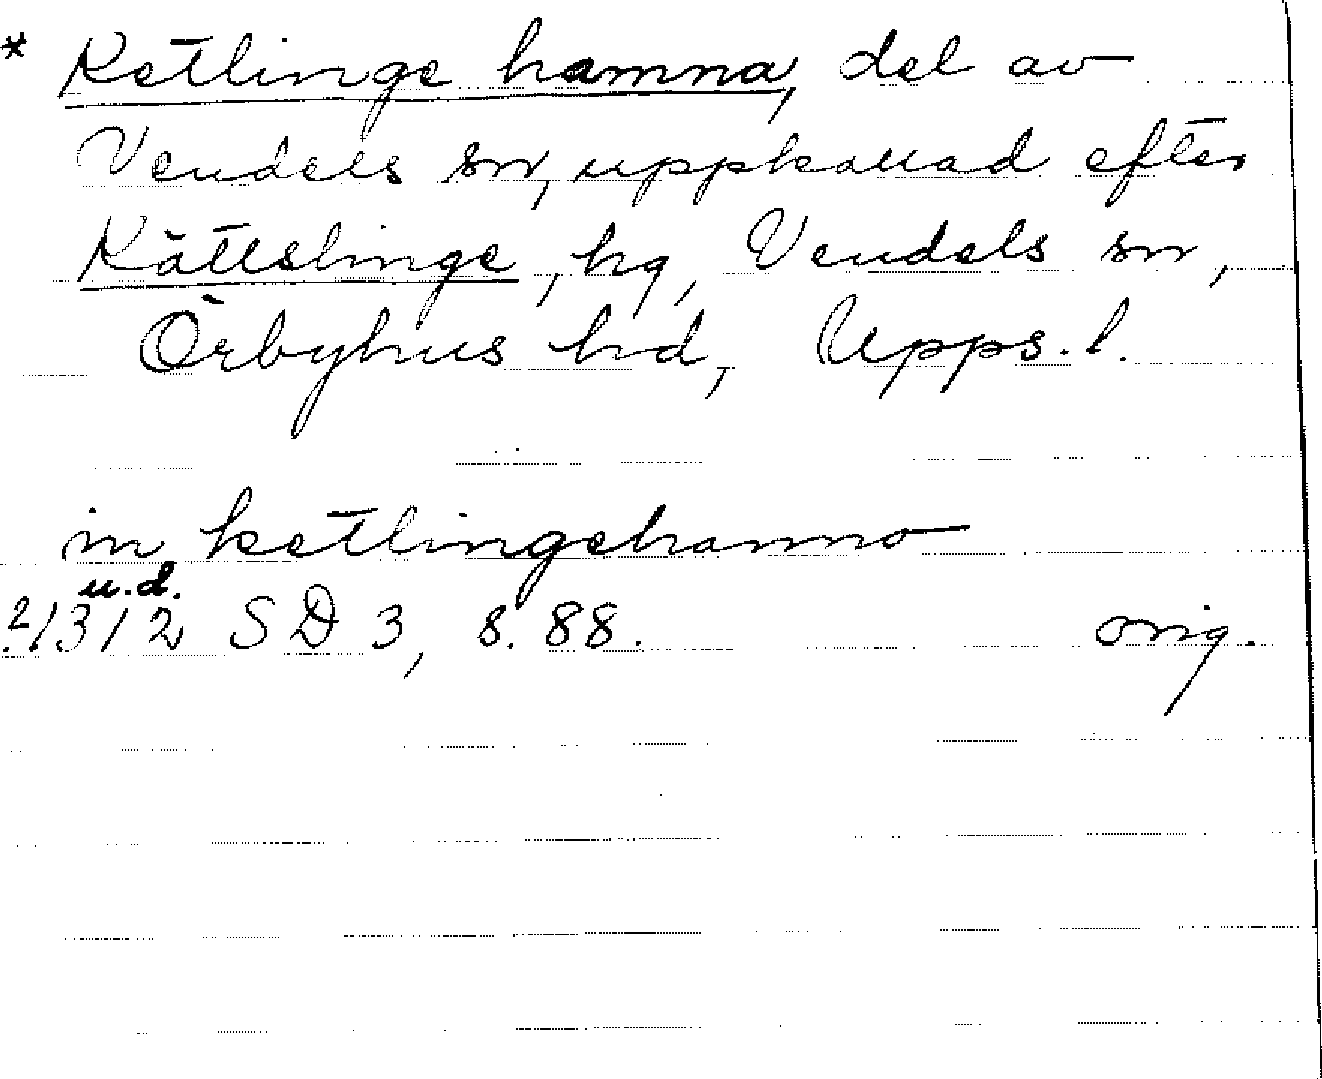 * Ketlinge hamna, del av
Vendels sn, uppkallad efter
Kättslinge, hg, Vendels sn,
Örbyhus hd, Upps. l.
in ketlingehamno
u.d.
2/3 12 SD 3, s. 88. orig.